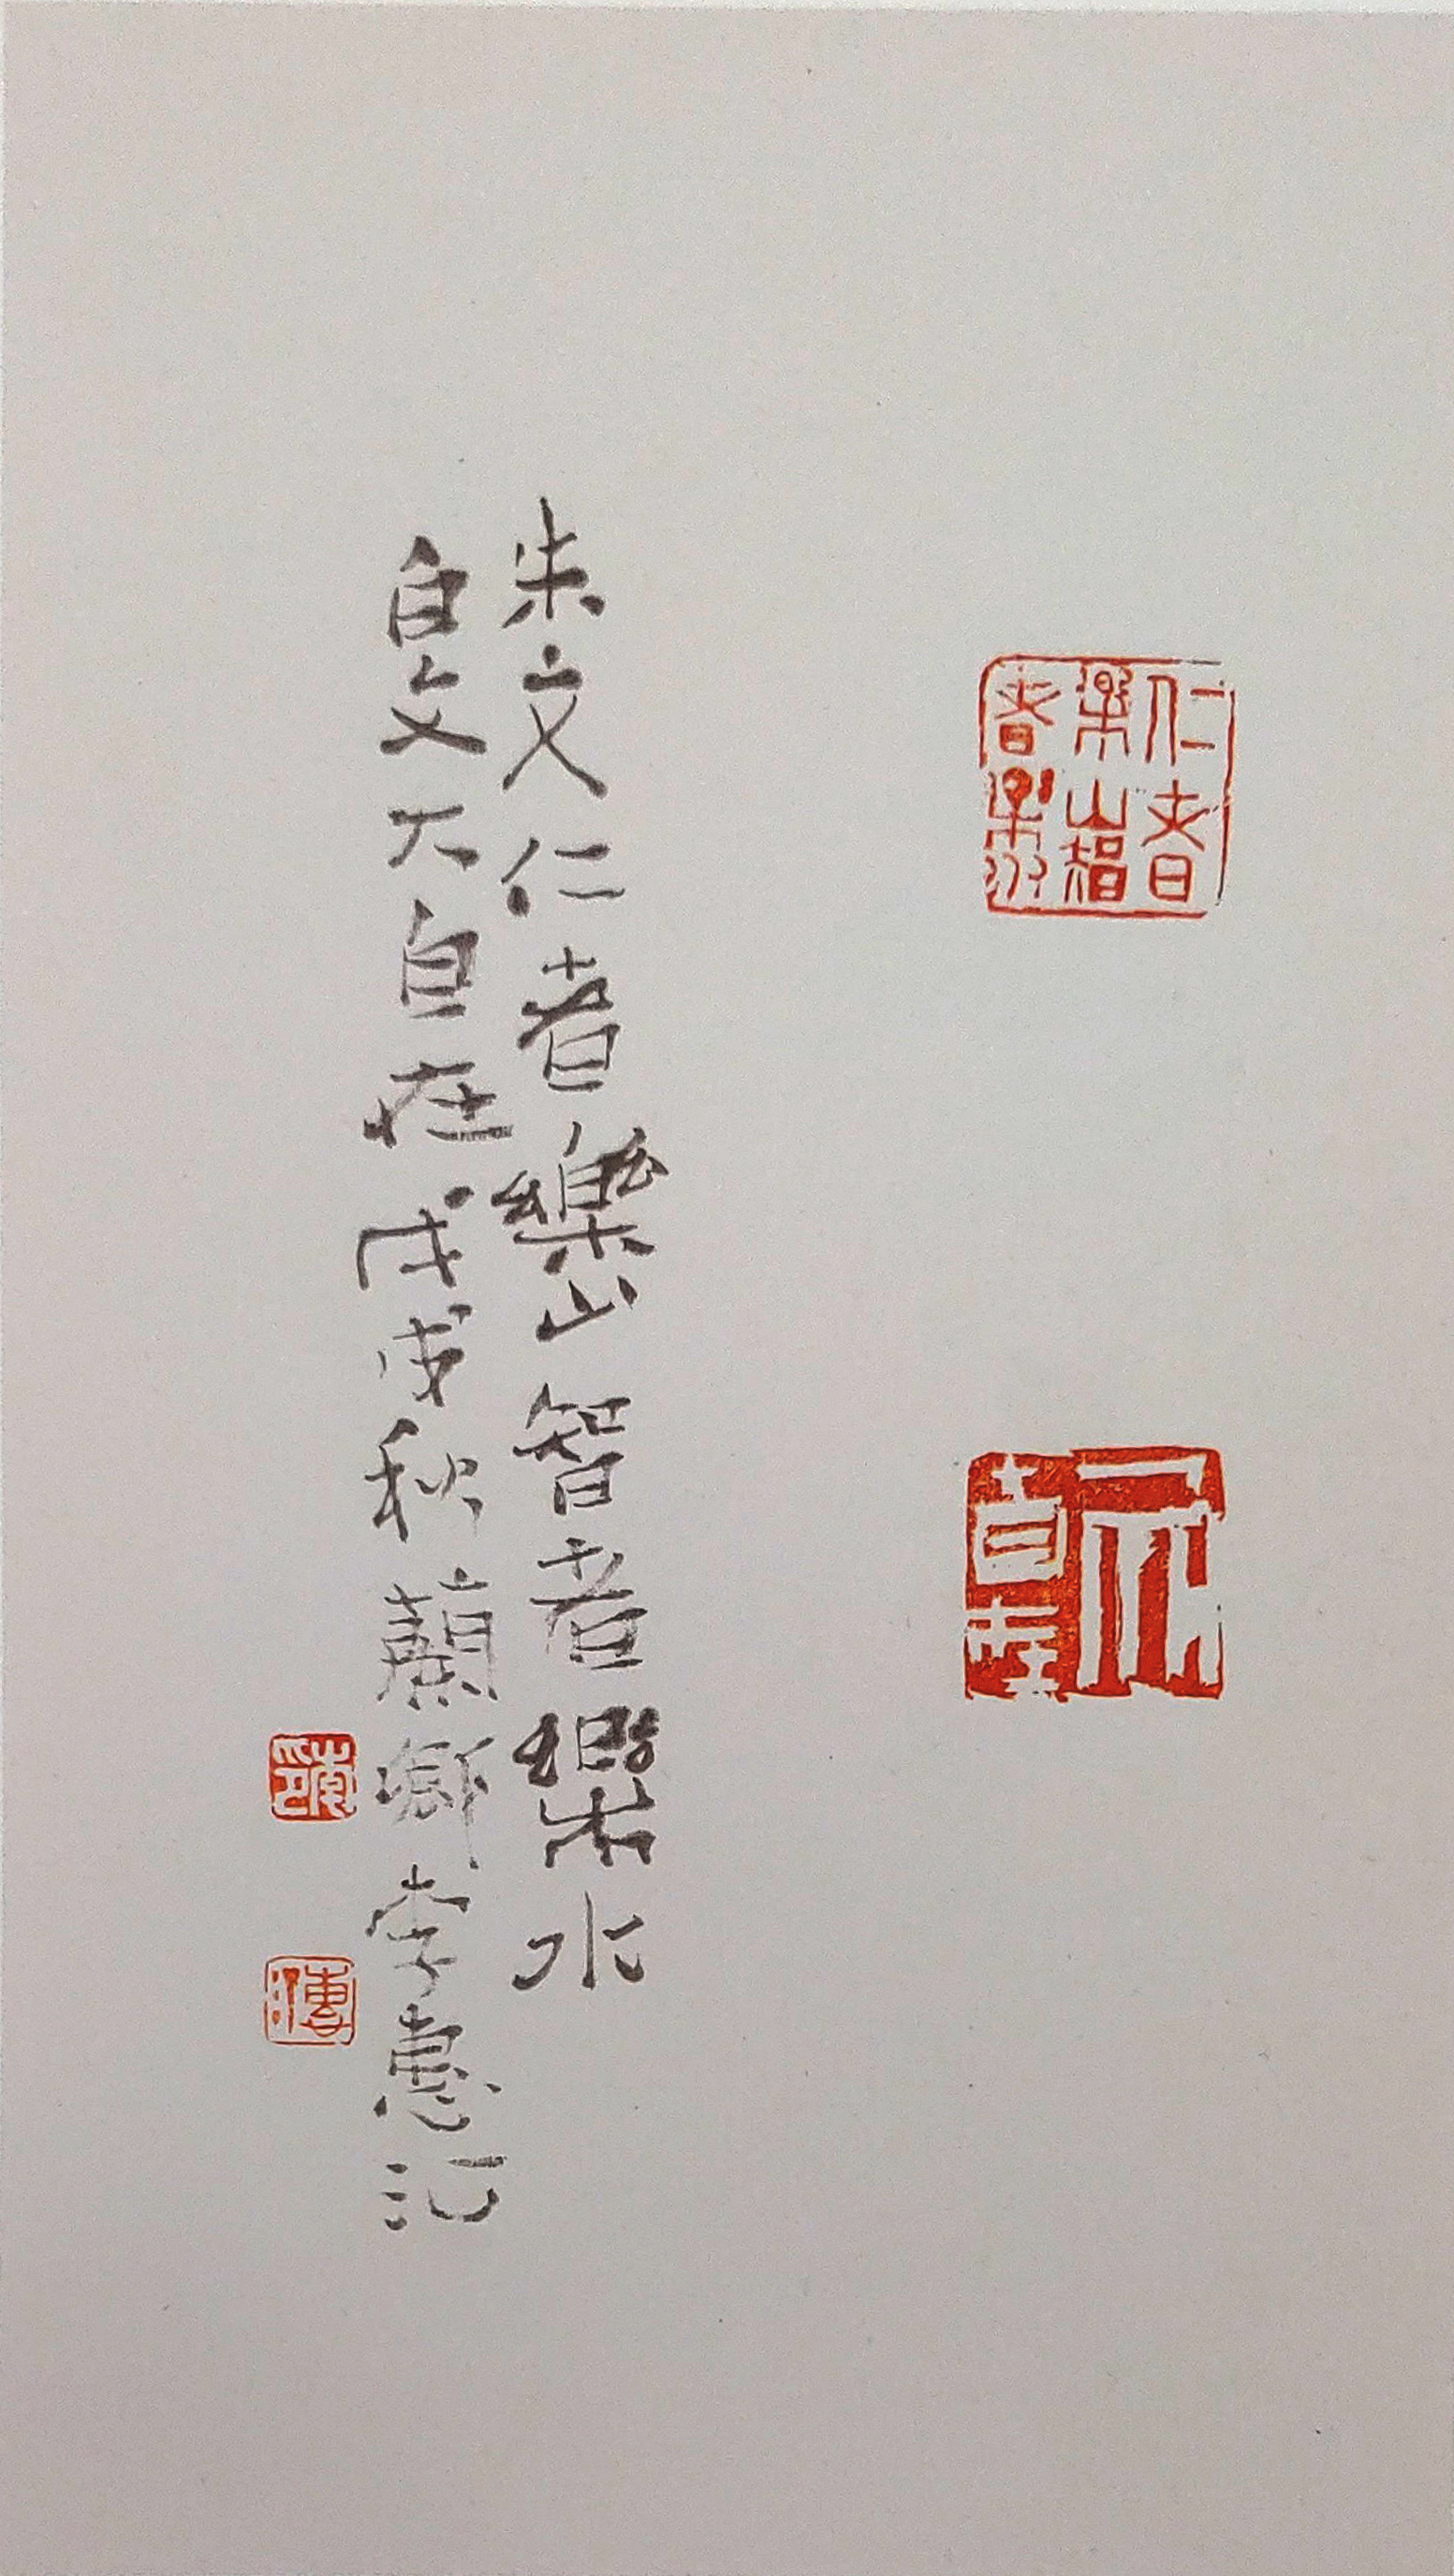 仁者樂山智者樂水
大自在
朱文仁者樂山智者樂水
白文大自在戊戌秋蘄鄉李惠記